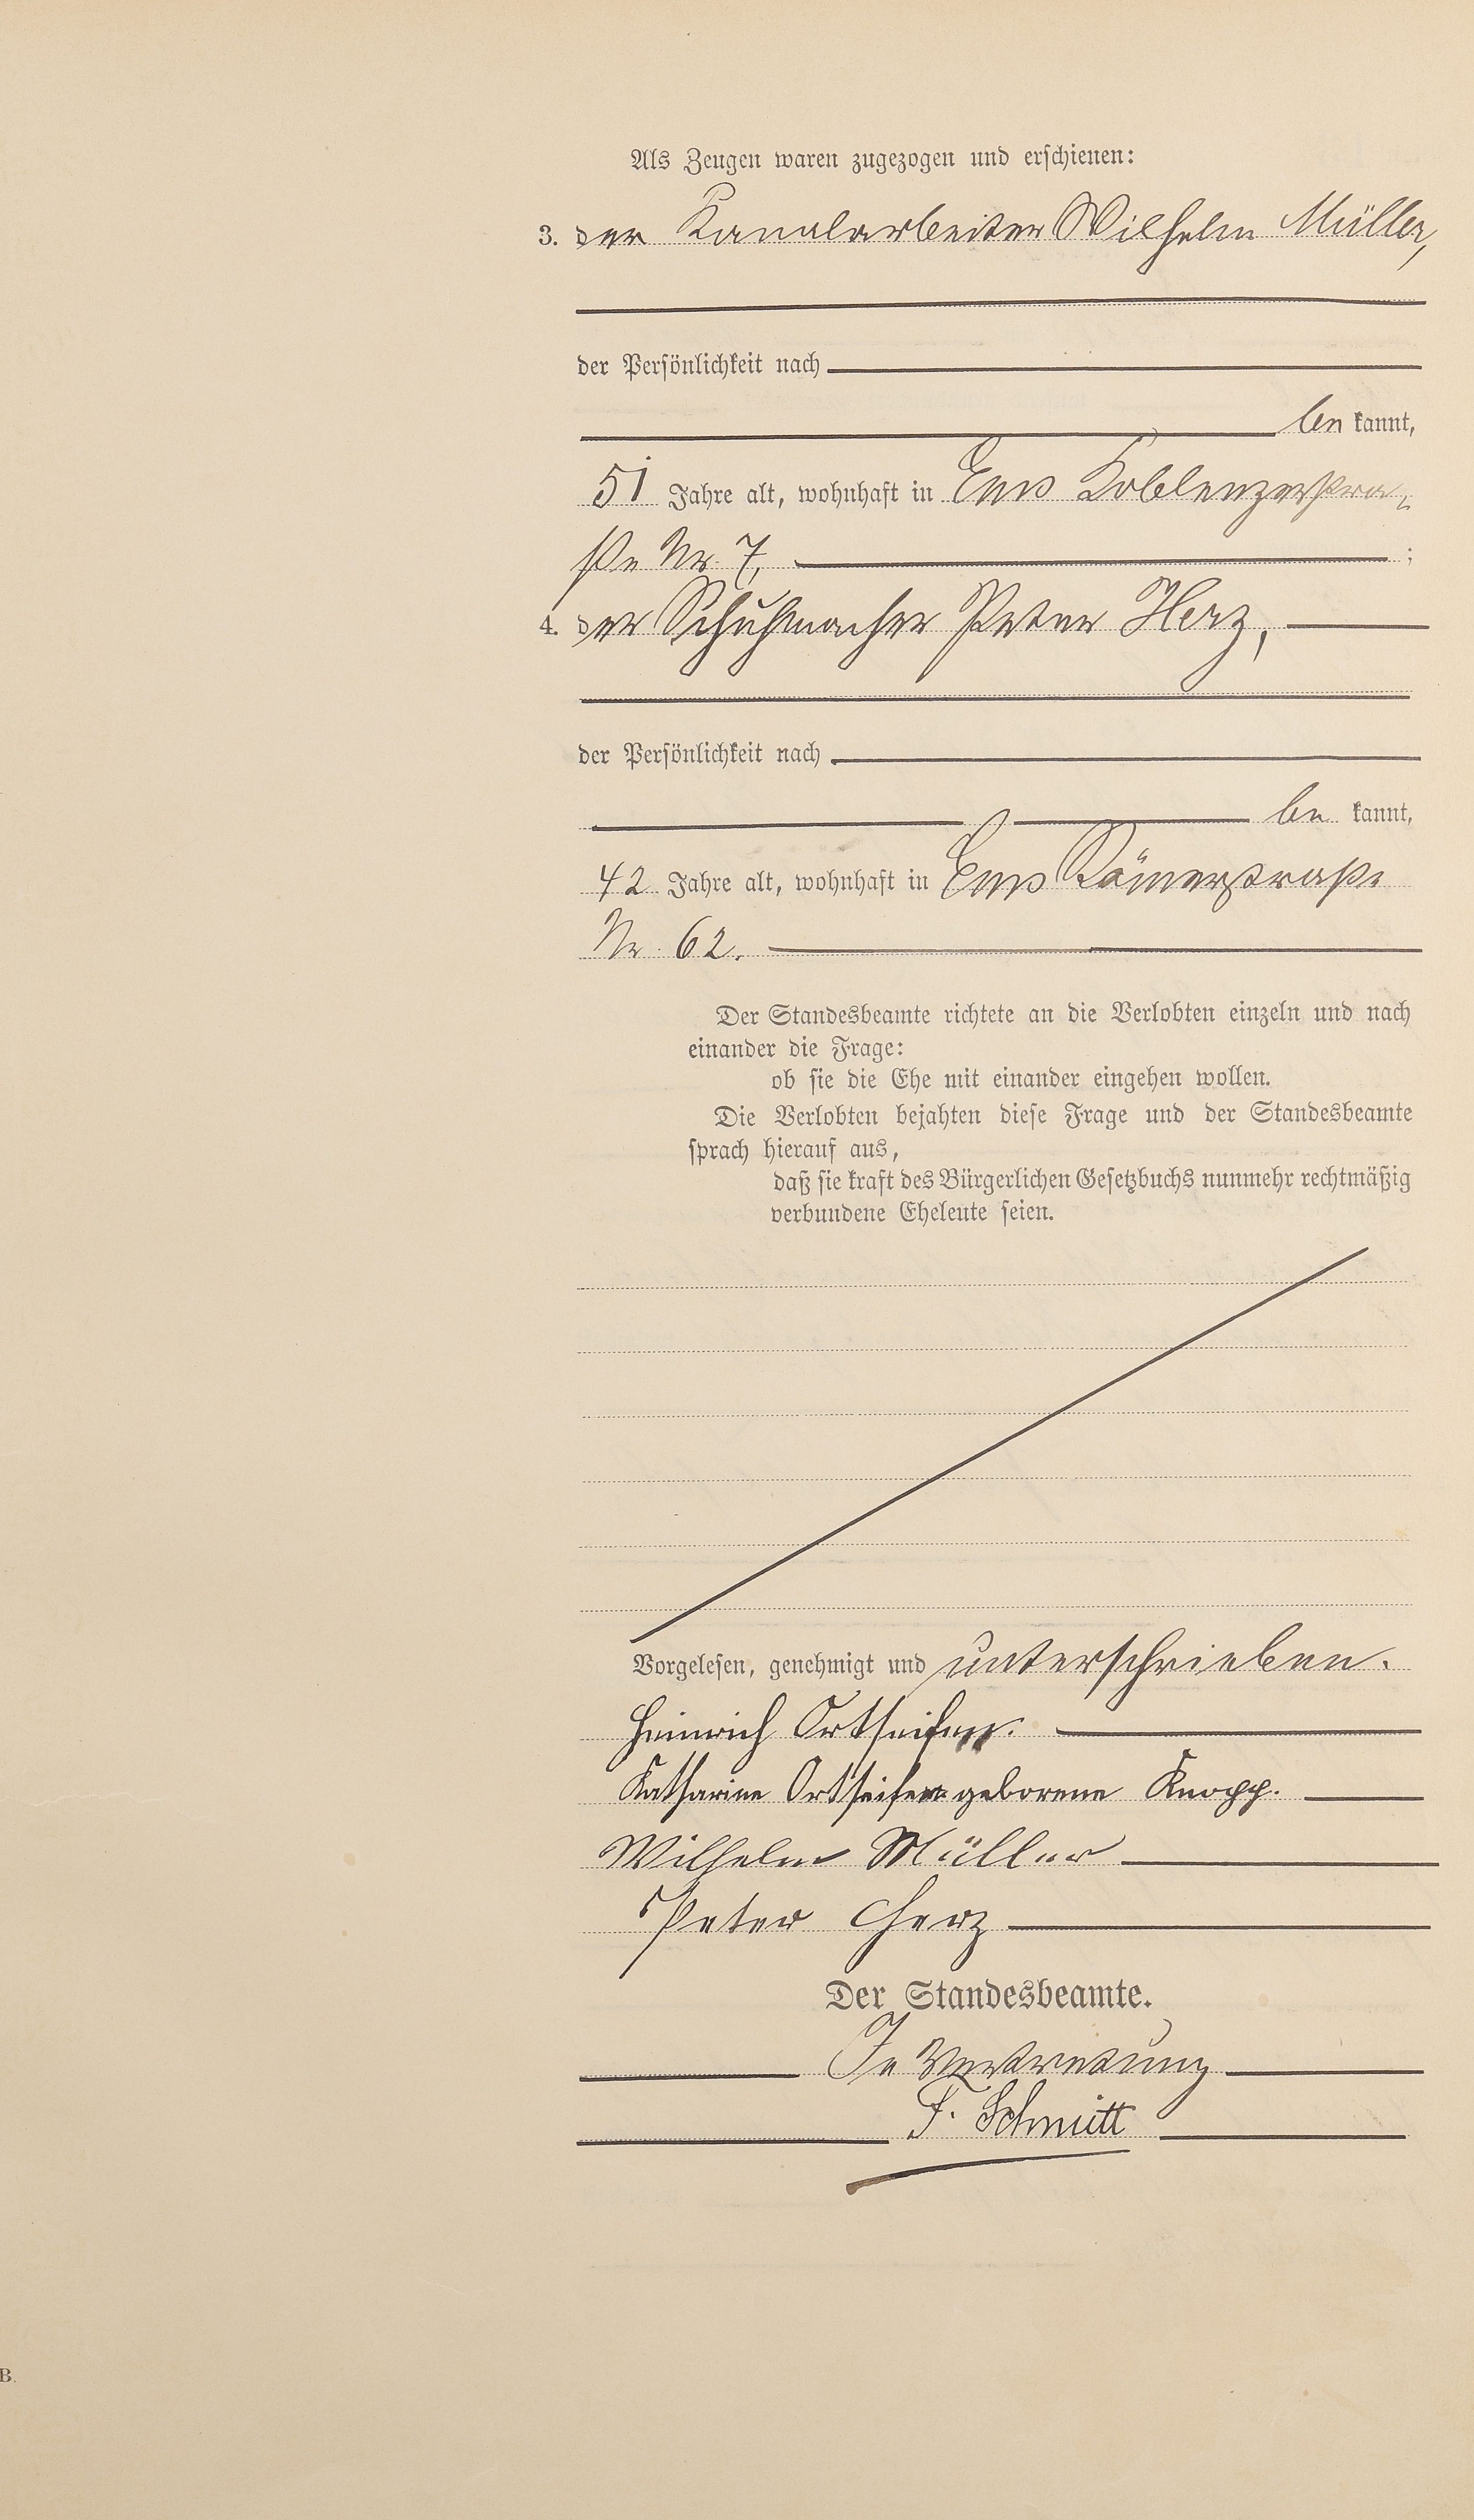 Als Zeugen waren zugezogen und erschienen:
3. der Kanalarbeiter Wilhelm Müller,
der Persönlichkeit nach
be kannt,
51 Jahre alt, wohnhaft in Ems Koblenzerstra-
ße Nr. 7, ;
4. der Schuhmacher Peter Herz,
der Persönlichkeit nach
be kannt,
42 Jahre alt, wohnhaft in Ems Römerstraße
Nr. 62.
Der Standesbeamte richtete an die Verlobten einzeln und nach
einander die Frage:
ob sie die Ehe mit einander eingehen wollen.
Die Verlobten bejahten diese Frage und der Standesbeamte
sprach hierauf aus,
daß sie kraft des Bürgerlichen Gesetzbuchs nunmehr rechtmäßig
verbundene Eheleute seien.
Vorgelesen, genehmigt und unterschrieben.
Heinrich Ortseifen.
Katharine Ortseifen geborene Knopp.
Wilhelm Müller
Peter Herz
Der Standesbeamte.
In Vertretung
F. Schmitt
B.